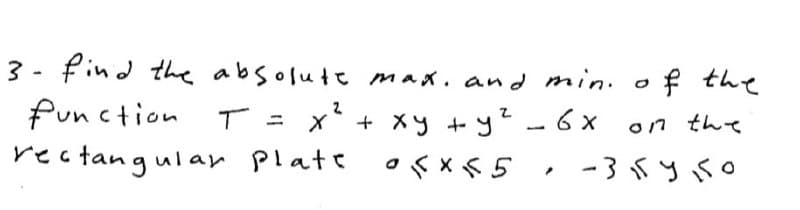 3 - find the absolute max. and min. of the
function T = x² + xy + y² - 6x on the
rectangular plate 0 ≤ x ≤ 5 , -3 ≤ y ≤ 0